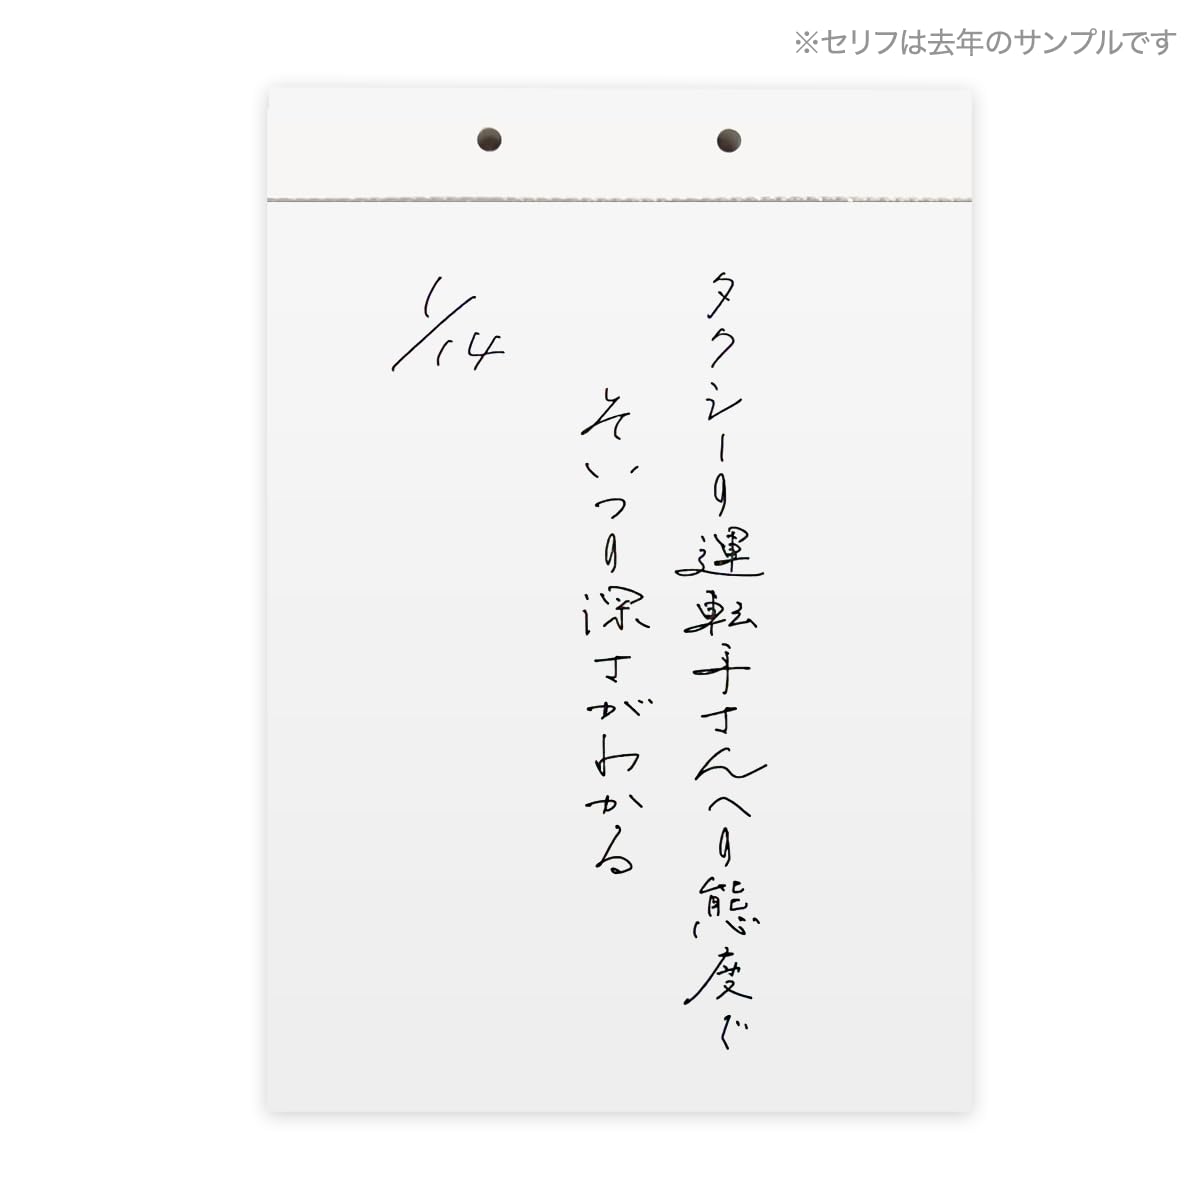 ※セリフは去年のサンプルです
タクシーの運転手さんへの態度で
そいつの深さがわかる
1/14